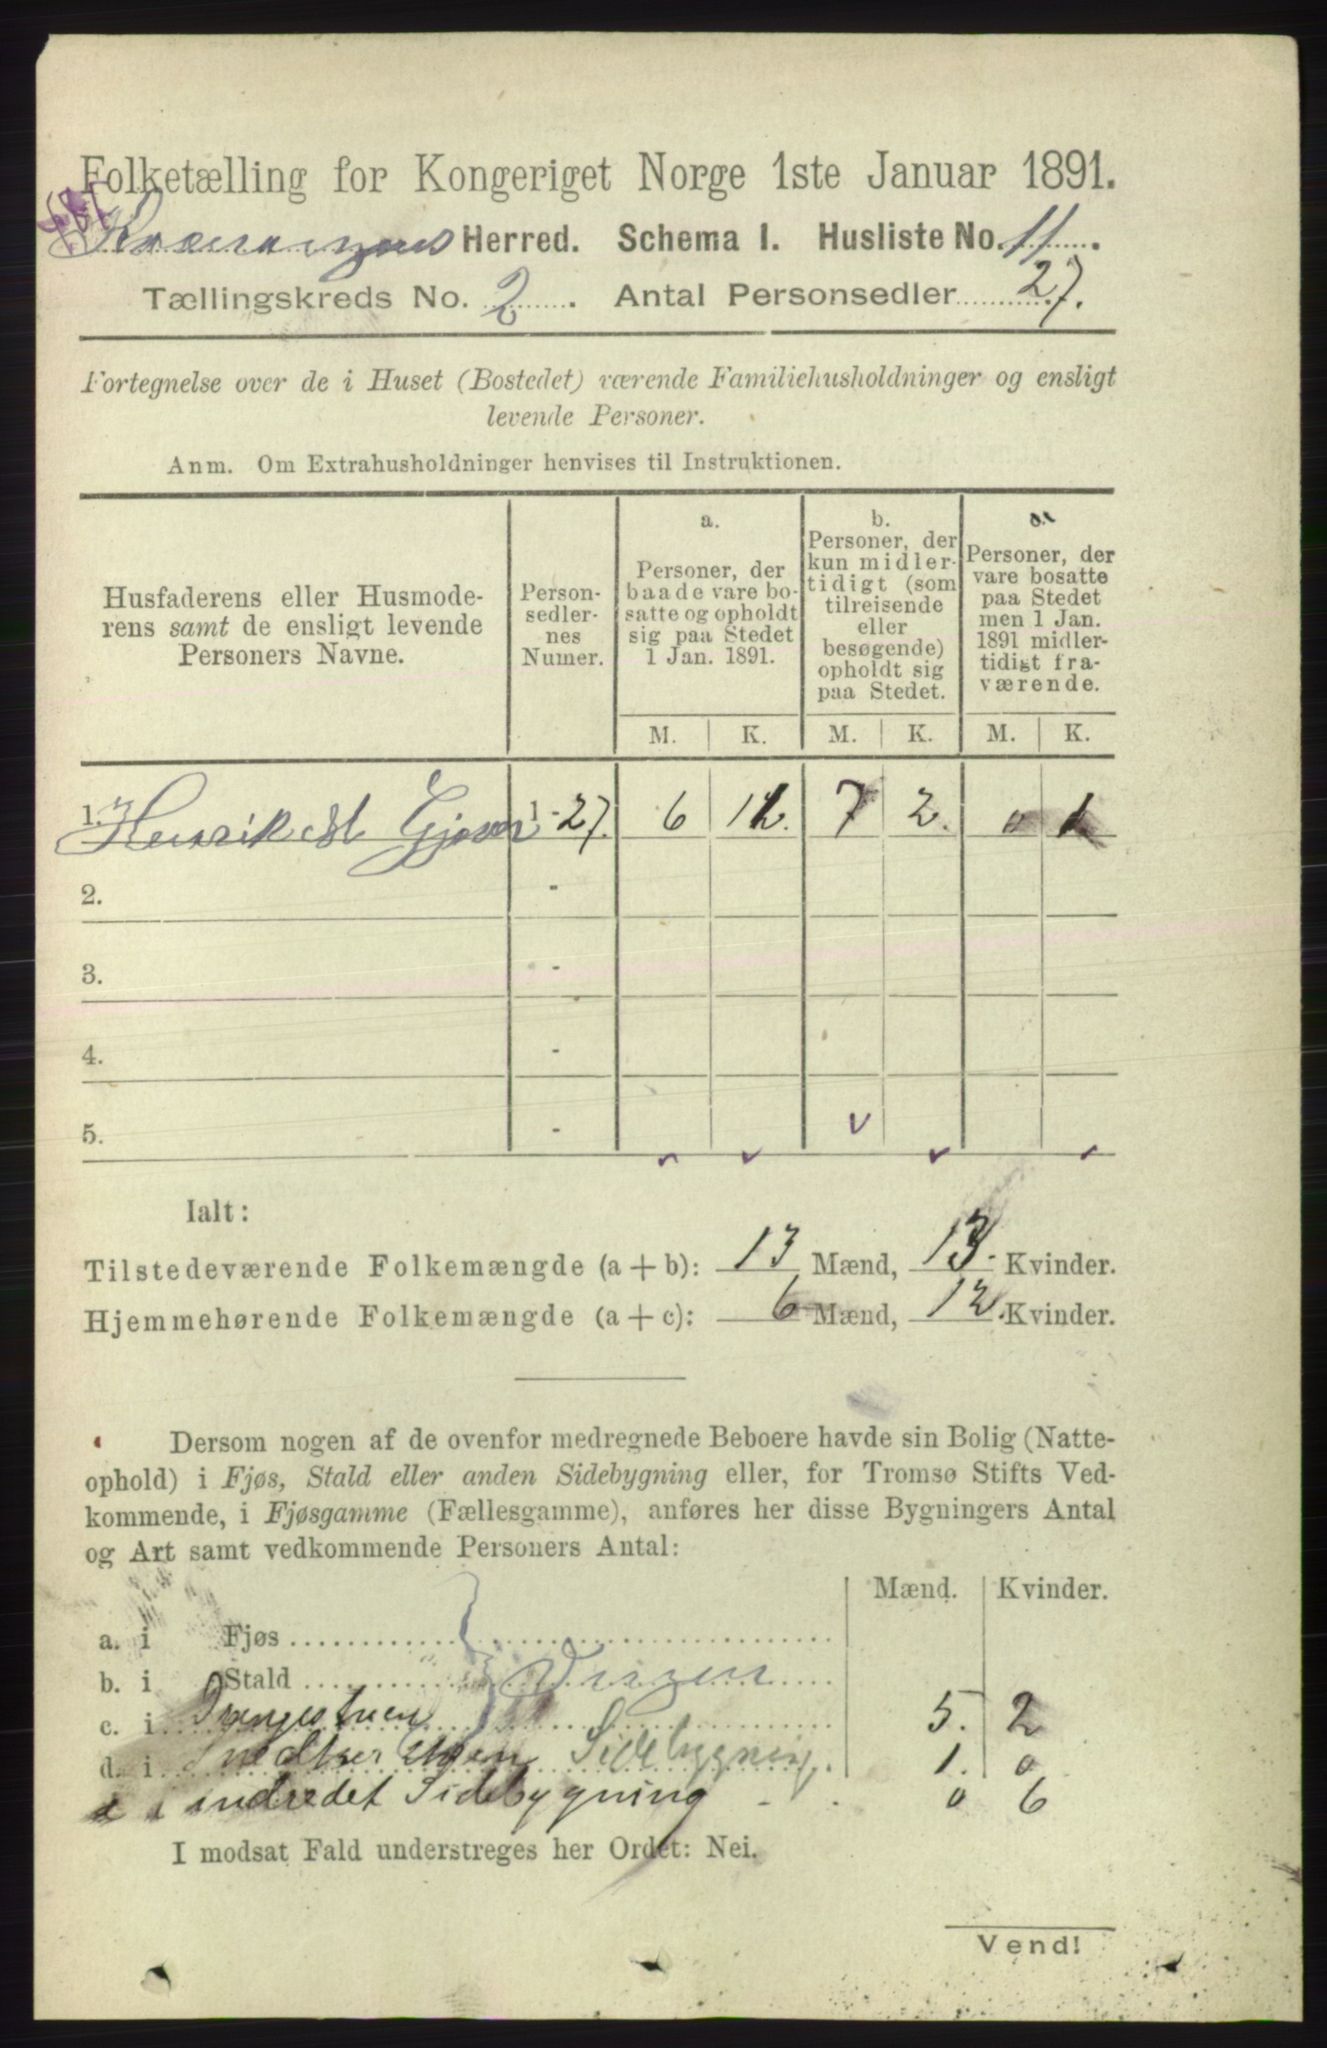 Folketælling for Kongeriget Norge 1ste Januar 1891.
Kvænangens Herred. Schema I. Husliste No. 11.
Tællingskreds No. 2. Antal Personsedler 27.
Fortegnelse over de i Huset (Bostedet) værende Familiehusholdninger og ensligt
levende Personer.
Anm. Om Extrahusholdninger henvises til Instruktionen.
Husfaderens eller Husmode-
rens samt de ensligt levende
Personers Navne.
Person-
sedler-
nes
Numer.
a.
Personer, der
baade vare bo-
satte og opholdt
sig paa Stedet
1 Jan. 1891.
b.
Personer, der
kun midler-
tidigt (som
tilreisende
eller
besøgende)
opholdt sig
paa Stedet.
c.
Personer, der
vare bosatte
paa Stedet
men 1 Jan.
1891 midler-
tidigt fra-
værende.
M. K. M. K. M. K.
1. Henrik 1-27. 6 12. 7 2. 0 1
2. -
3. -
4. -
5. -
Ialt:
Tilstedeværende Folkemængde (a + b): 13 Mænd, 13. Kvinder.
Hjemmehørende Folkemængde (a + c): 6 Mænd, 12. Kvinder.
Dersom nogen af de ovenfor medregnede Beboere havde sin Bolig (Natte-
ophold) i Fjøs, Stald eller anden Sidebygning eller, for Tromsø Stifts Ved-
kommende, i Fjøsgamme (Fællesgamme), anføres her disse Bygningers Antal
og Art samt vedkommende Personers Antal:
Mænd. Kvinder.
a. i Fjøs
b. i Stald
c. i Drengestuen 5. 2
d. i Sidebygning. 1. 0
i indredet Sidebygning - . 0 6
I modsat Fald understreges her Ordet: Nei.
Vend!